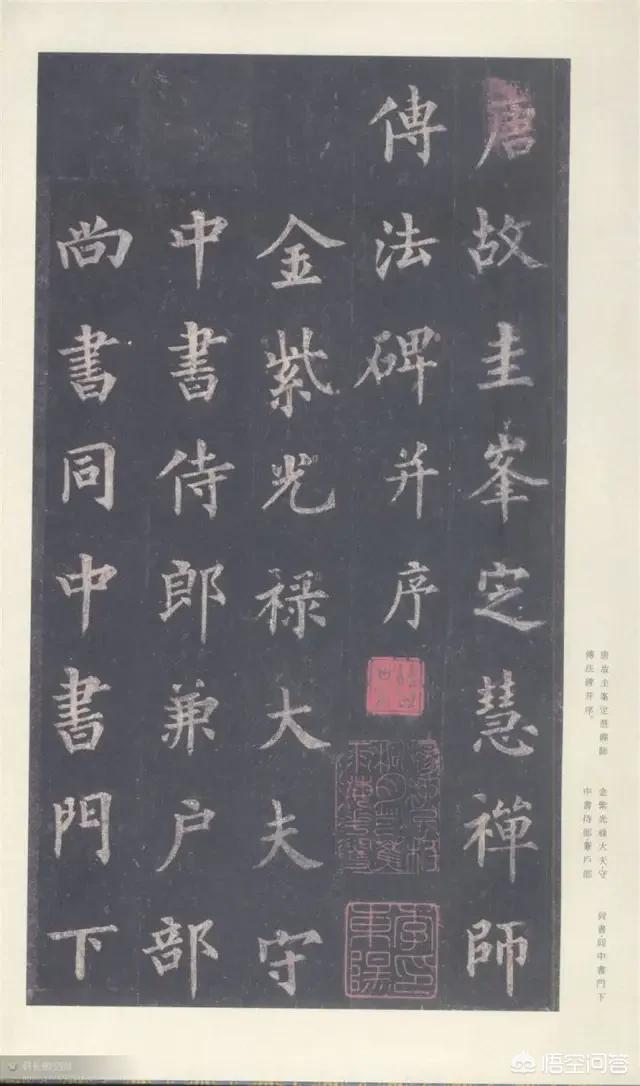 唐故圭峯定慧禪師
傳法碑并序
金紫光禄大夫守
中書侍郎兼户部
尚書同中書門下
唐故圭峯定慧禪師
傳法碑并序。
金紫光禄大夫守
中書侍郎兼户部
尚書同中書門下
悟空问答